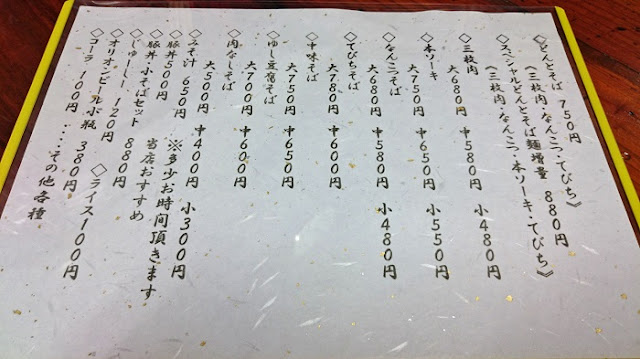 ◇どんとそば 750円
《三枚肉・なんこつ・てびち》
◇スペシャルどんとそば麺増量 880円
《三枚肉・なんこつ・本ソーキ・てびち》
◇三枚肉
大680円 中580円 小480円
◇本ソーキ
大750円 中650円 小550円
◇なんこつそば
大680円 中580円 小480円
◇てびちそば
大780円 中680円
◇中味そば
大750円 中650円
◇ゆし豆腐そば
大700円 中600円
◇肉なしそば
大500円 中400円 小300円
◇みそ汁 650円 ※多少お時間頂きます
◇豚丼500円
◇じゅーしー 小そばセット 880円 当店おすすめ
◇オリオンビール小瓶 380円 ◇ライス100円
◇コーラ 100円 ‥‥その他各種